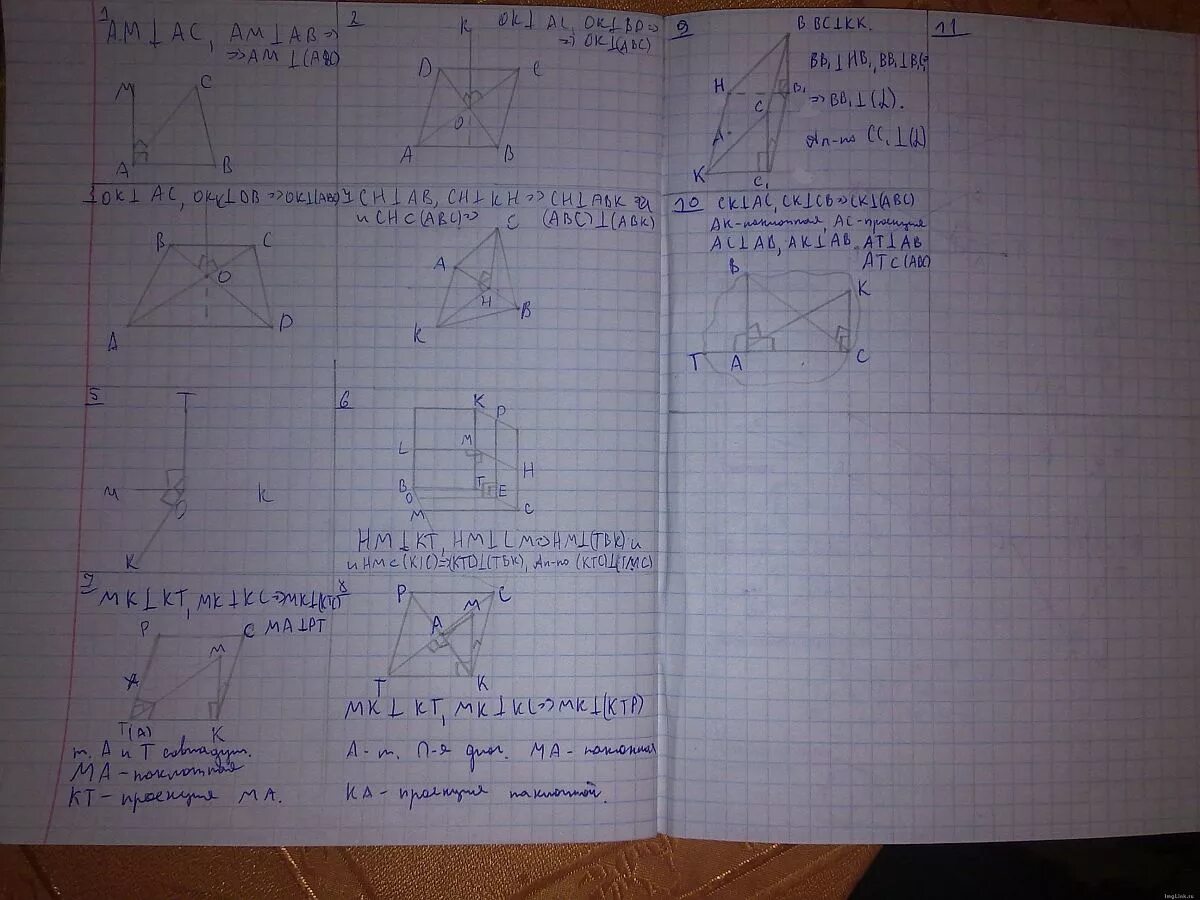 1
AM⊥AC, AM⊥AB ⇒
⇒ AM⊥(ABC)
M
C
A
B
2
OK⊥AC, OK⊥BD ⇒
⇒ OK⊥(ABC)
K
D
C
O
A
B
3 OK⊥AC, OK⊥DB ⇒ OK⊥(ABC)
B
C
O
A
D
4 CH⊥AB, CH⊥KH ⇒ CH⊥ABK
и CH⊂(ABC) ⇒ (ABC)⊥(ABK)
C
A
H
B
K
5
T
M
O
K
K
6
K
P
L
M
H
B
T
E
O
M
C
HM⊥KT, HM⊥LM ⇒ HM⊥(TBK) и
и HM⊂(KTC) ⇒ (KTC)⊥(TBK), Ан-но (KTC)⊥(TMC)
7
MK⊥KT, MK⊥KC ⇒ MK⊥(KTC)
MA⊥PT
P
C
M
A
T(A)
K
т. A и T совпадут.
MA - наклонная
KT - проекция MA.
8
P
C
M
A
T
K
MK⊥KT, MK⊥KC ⇒ MK⊥(KTP)
A - т. П-я диог. MA - наклонная
KA - проекция наклонной.
9
B BC⊥KK.
BB₁⊥HB₁, BB₁⊥B₁C₁
⇒ BB₁⊥(L).
Ан-но CC₁⊥(L)
H
B₁
C
A
K
C₁
10 CK⊥AC, CK⊥CB ⇒ CK⊥(ABC)
AK - наклонная, AC - проекция
AC⊥AB, AK⊥AB, AT⊥AB
AT⊂(ABC)
B
K
T
A
C
11
ImgLink.ru